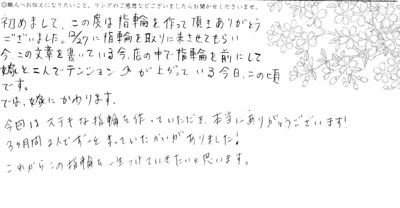 ◎職人へお伝えになりたいこと、リングのご感想などございましたらお聞かせくださいませ。
初めまして、この度は指輪を作って頂きありがとう
ございました。12/27に指輪を取りに来させてもらい
今、この文章を書いている今、店の中で指輪を前にして
嫁と二人でテンションが上がっている今日この頃
です。
では、嫁にかわります。
今回はステキな指輪を作っていただき、本当にありがとうございます!
3ヶ月間2人でずーっと待っていたかいがありました!
これからこの指輪を一生つけていきたいと思います。